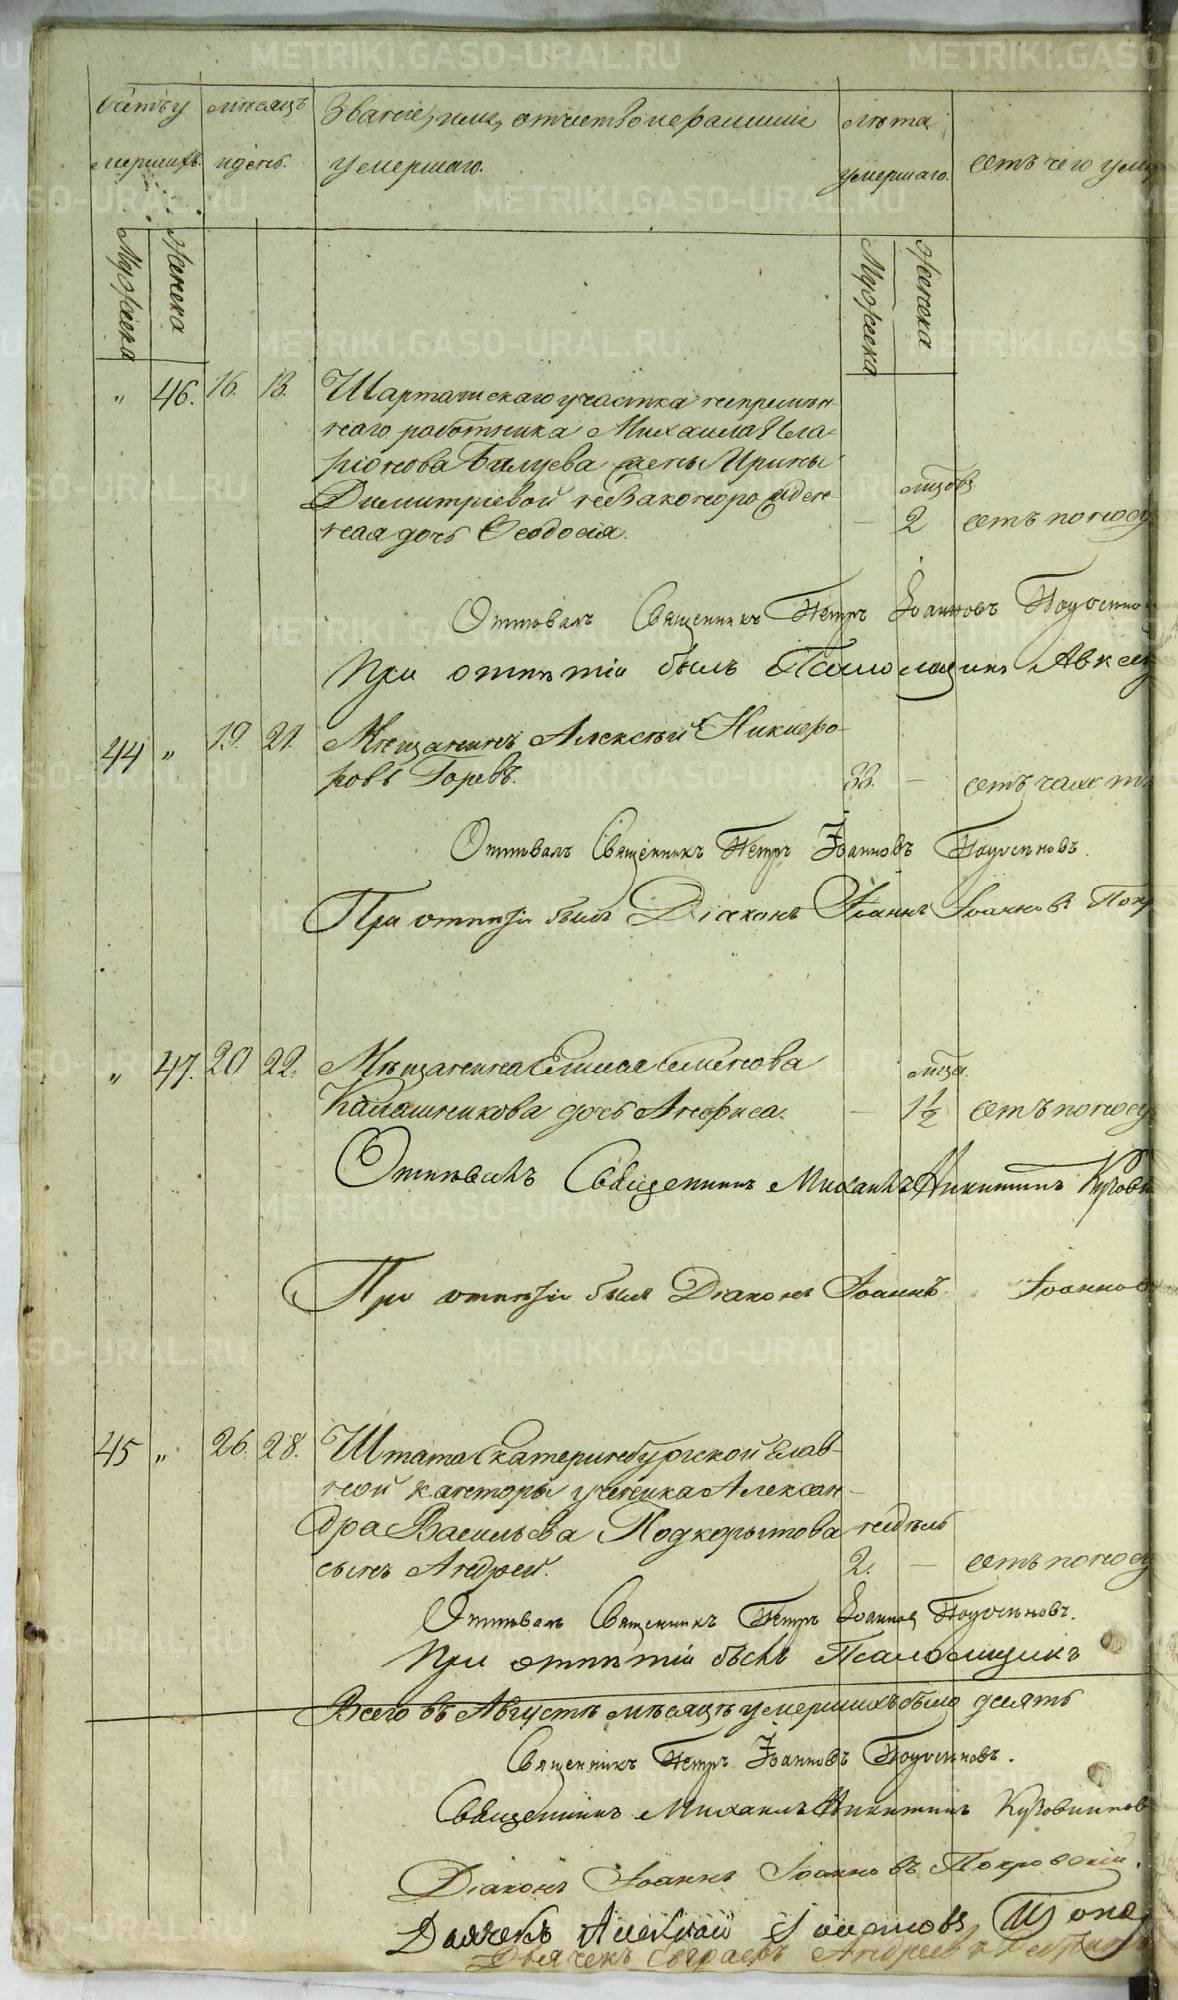 Счетъ у
мершихъ.
мѣсяцъ
и день.
Званіе, имя, отчество и фамиліи
умершаго.
лѣта
умершаго.
отъ чего уме
Мужеска
Женска
Мужеска
Женска
„ 46. 16. 18. Шарташскаго участка непремѣн-
наго работника Михаила Ила-
ріонова Балуева жены Ирины
Димитріевой незаконорожден-
ная дочь Ѳеодосія.
мѣсяцъ
— 2 отъ поносу
Отпѣвалъ Священникъ Петръ Іоанновъ Подосеновъ
При отпѣтіи былъ Псаломщикъ Алексѣ
44 „ 19. 21. Мѣщанинъ Алексѣй Никифо-
ровъ Горевъ.
33. — отъ чахот
Отпѣвалъ Священникъ Петръ Іоанновъ Подосеновъ.
При отпѣтіи былъ Діаконъ Іоаннъ Іоанновъ Покр
„ 47. 20 22. Мѣщанина Семенова
Калашникова дочь Анфиса.
мѣсяца.
— 1½ отъ поносу
Отпѣвалъ Священникъ Михаилъ Никитинъ
При отпѣтіи былъ Діаконъ Іоаннъ Іоанно
45 „ 26. 28. Штата Екатеринбургской Глав-
ной канторы ученика Алексан-
дра Васильева Подкорытова
сынъ Андрей.
недѣль
2. — отъ поносу
Отпѣвалъ Священникъ Петръ Іоанновъ Подосеновъ.
При отпѣтіи былъ Псаломщикъ
Всего въ Августѣ мѣсяцѣ умершихъ было десять
Священникъ Петръ Іоанновъ Подосеновъ.
Священникъ Михаилъ Никитинъ
Діаконъ Іоаннъ Іоанновъ Покровскій.
Дьячекъ Алексѣй
Дьячекъ
METRIKI.GASO-URAL.RU